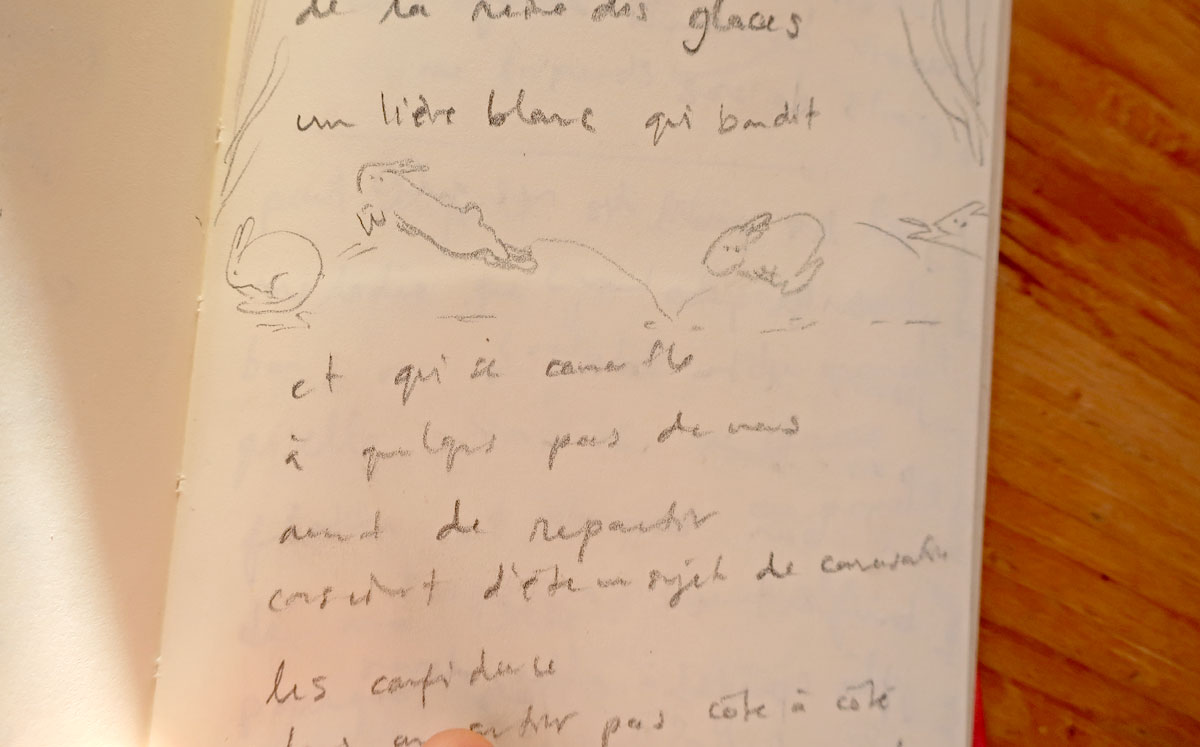 de la reine des glaces
un lièvre blanc qui bondit
et qui se camoufle
à quelques pas de nous
avant de repartir
conscient d'être un sujet de conversation
les confidences
pas côte à côte